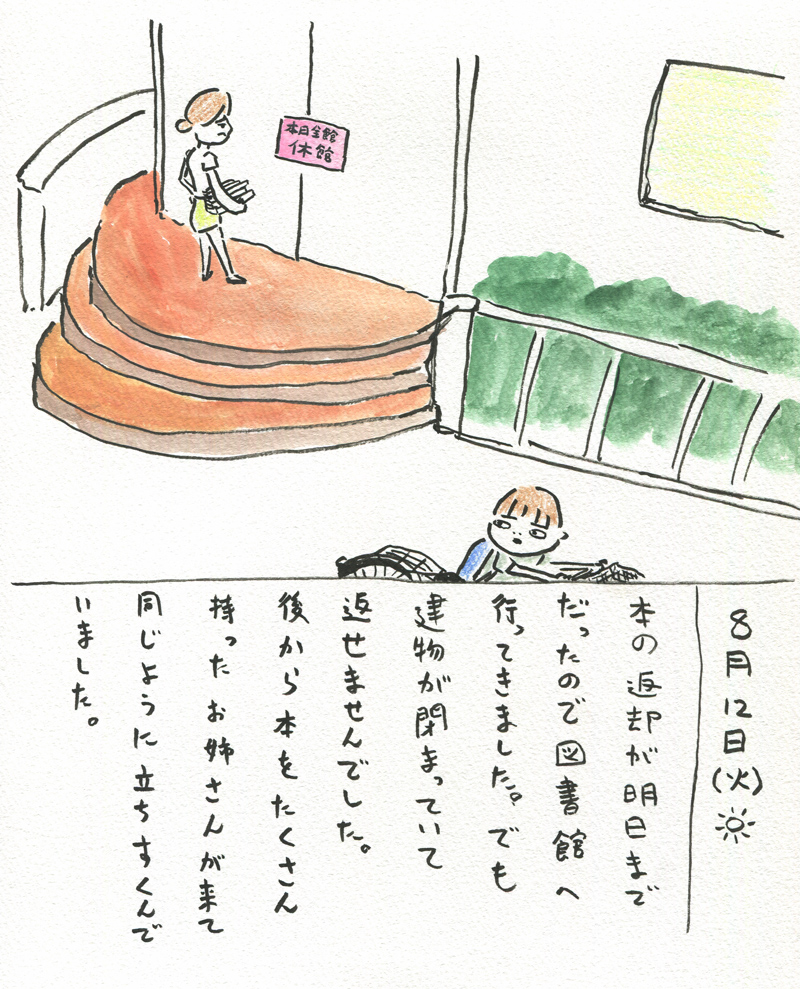 本日全館
休館
8月12日(火)
本の返却が明日まで
だったので図書館へ
行ってきました。でも
建物が閉まっていて
返せませんでした。
後から本をたくさん
持ったお姉さんが来て
同じように立ちすくんで
いました。